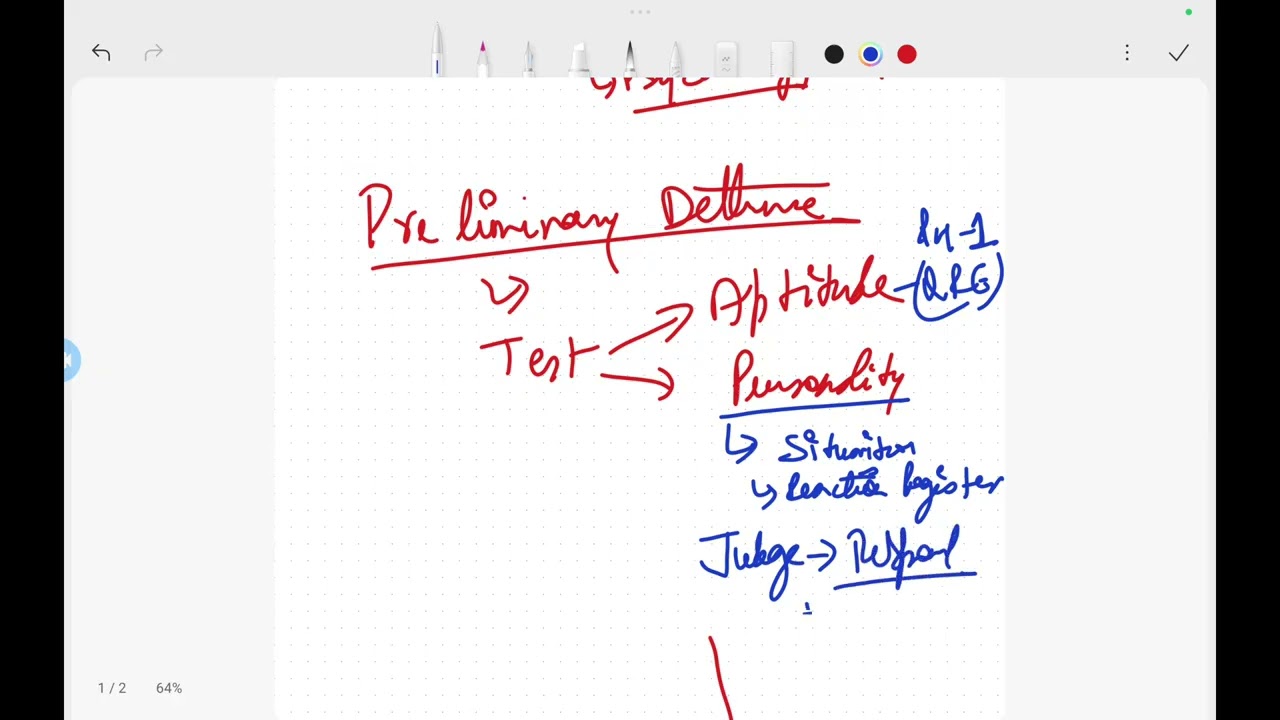 Preliminary
Aptitude
Test
Personality
Situation
Reaction Register
Judge → Respond
1 / 2 64%